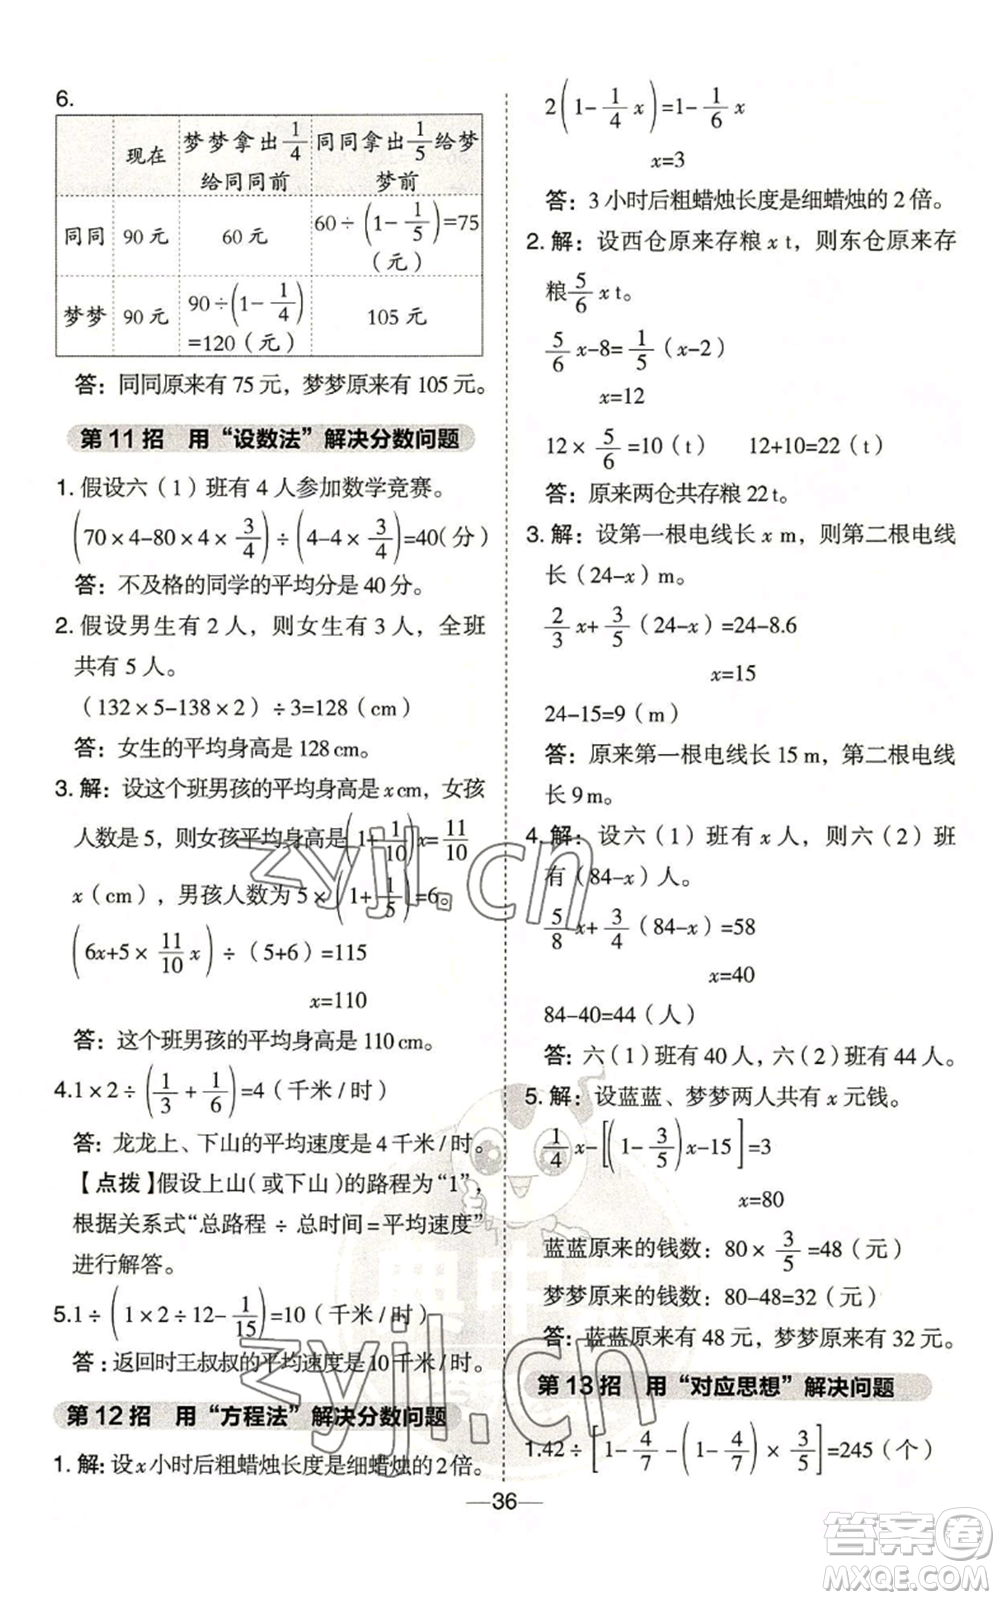 6.
现在 梦梦拿出1/4给同同前 同同拿出1/5给梦梦前
同同 90元 60元 60÷(1-1/5)=75(元)
梦梦 90元 90÷(1-1/4)=120(元) 105元
答：同同原来有75元，梦梦原来有105元。
第11招 用“设数法”解决分数问题
1. 假设六（1）班有4人参加数学竞赛。
(70×4-80×4×3/4)÷(4-4×3/4)=40(分)
答：不及格的同学的平均分是40分。
2. 假设男生有2人，则女生有3人，全班
共有5人。
(132×5-138×2)÷3=128(cm)
答：女生的平均身高是128cm。
3. 解：设这个班男孩的平均身高是x cm，女孩
人数是5，则女孩平均身高是(1+1/10)x=11/10
x(cm)，男孩人数为5×(1+1/5)=6。
(6x+5×11/10x)÷(5+6)=115
x=110
答：这个班男孩的平均身高是110cm。
4.1×2÷(1/3+1/6)=4(千米/时)
答：龙龙上、下山的平均速度是4千米/时。
【点拨】假设上山(或下山)的路程为“1”，
根据关系式“总路程÷总时间=平均速度”
进行解答。
5.1÷(1×2÷12-1/15)=10(千米/时)
答：返回时王叔叔的平均速度是10千米/时。
第12招 用“方程法”解决分数问题
1. 解：设x小时后粗蜡烛长度是细蜡烛的2倍。
2(1-1/4x)=1-1/6x
x=3
答：3小时后粗蜡烛长度是细蜡烛的2倍。
2. 解：设西仓原来存粮x t，则东仓原来存
粮5/6x t。
5/6x-8=1/5(x-2)
x=12
12×5/6=10(t) 12+10=22(t)
答：原来两仓共存粮22t。
3. 解：设第一根电线长x m，则第二根电线
长(24-x)m。
2/3x+3/5(24-x)=24-8.6
x=15
24-15=9(m)
答：原来第一根电线长15m，第二根电线
长9m。
4. 解：设六（1）班有x人，则六（2）班
有(84-x)人。
5/8x+3/4(84-x)=58
x=40
84-40=44(人)
答：六（1）班有40人，六（2）班有44人。
5. 解：设蓝蓝、梦梦两人共有x元钱。
1/4x-[(1-3/5)x-15]=3
x=80
蓝蓝原来的钱数：80×3/5=48(元)
梦梦原来的钱数：80-48=32(元)
答：蓝蓝原来有48元，梦梦原来有32元。
第13招 用“对应思想”解决问题
1.42÷[1-4/7-(1-4/7)×3/5]=245(个)
—36—
zyjl.cn
zyjl.cn
答案圈
MXQE.COM